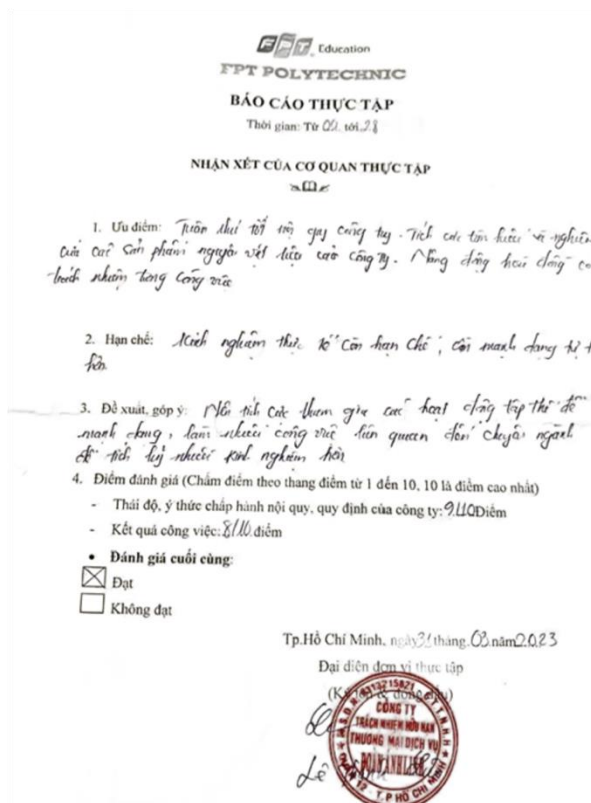 FPT Education
FPT POLYTECHNIC
BÁO CÁO THỰC TẬP
Thời gian: Từ 02 tới 28
NHẬN XÉT CỦA CƠ QUAN THỰC TẬP
1. Ưu điểm: Tuân thủ tốt nội quy công ty. Tích cực tìm hiểu và nghiên
cứu các sản phẩm nguyên vật liệu của công ty. Năng động hoà đồng có
trách nhiệm trong công việc
2. Hạn chế: Kinh nghiệm thực tế còn hạn chế, cần mạnh dạng tự t
hơn
3. Đề xuất, góp ý: Nên tích cực tham gia các hoạt động tập thể để
mạnh dạng, làm nhiều công việc liên quan đến chuyên ngành
để tích luỹ nhiều kinh nghiệm hơn
4. Điểm đánh giá (Chấm điểm theo thang điểm từ 1 đến 10, 10 là điểm cao nhất)
- Thái độ, ý thức chấp hành nội quy, quy định của công ty: 9/10 Điểm
- Kết quả công việc: 8/10 điểm
• Đánh giá cuối cùng:
Đạt
Không đạt
Tp.Hồ Chí Minh, ngày 31 tháng 03 năm 2023
Đại diện đơn vị thực tập
CÔNG TY
TRÁCH NHIỆM HỮU HẠN
THƯƠNG MẠI DỊCH VỤ
QUẬN 12 - T.P HỒ CHÍ MINH
Lê